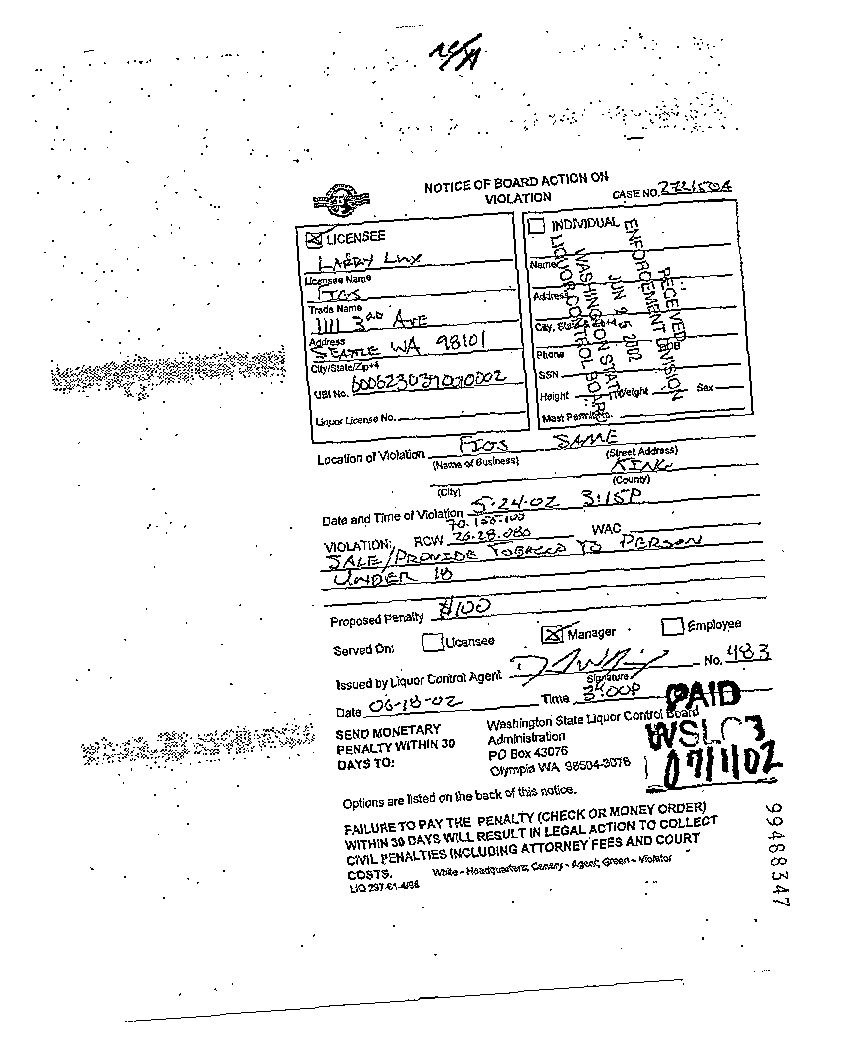 NOTICE OF BOARD ACTION ON
VIOLATION
CASE NO. 272150A
LICENSEE
LARRY LUX
Licensee Name
FIGS
Trade Name
1111 3RD AVE
Address
SEATTLE WA 98101
City/State/Zip+4
UBI No.
Liquor License No.
INDIVIDUAL
Name
Address
City, State
Phone
SSN
Height Weight Sex
Mast Permit No.
RECEIVED
ENFORCEMENT DIVISION
JUN 25 2002
WASHINGTON STATE
LIQUOR CONTROL BOARD
Location of Violation FIGS SAME
(Name of Business) (Street Address)
KING
(City) (County)
Date and Time of Violation 5-24-02 3:15P
70.155.100
VIOLATION: RCW 26.28.080 WAC
SALE/PROVIDE TOBACCO TO PERSON
UNDER 18
Proposed Penalty $100
Served On: Licensee Manager Employee
Issued by Liquor Control Agent No. 483
Signature
Date 06-18-02 Time 3:00P
PAID
WSLCB
07/11/02
SEND MONETARY
PENALTY WITHIN 30
DAYS TO:
Washington State Liquor Control Board
Administration
PO Box 43076
Olympia WA 98504-3076
Options are listed on the back of this notice.
FAILURE TO PAY THE PENALTY (CHECK OR MONEY ORDER)
WITHIN 30 DAYS WILL RESULT IN LEGAL ACTION TO COLLECT
CIVIL PENALTIES INCLUDING ATTORNEY FEES AND COURT
COSTS.
White - Headquarters, Canary - Agent, Green - Violator
LIQ 297-61-4/98
99488347